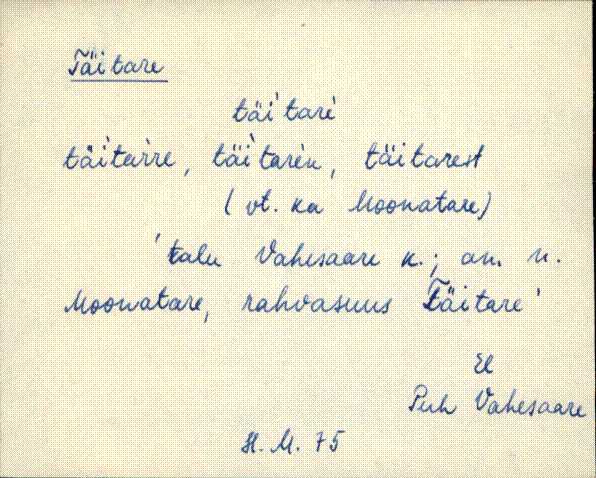 Täitare
täi`tarè
täi`tarre, täi`tarèn, täitarest
(vt. ka Moonatare)
'talu Vahesaare k.; am. n.
Moonatare, rahvasuus Täitare'
El
Puh Vahesaare
H. M. 75